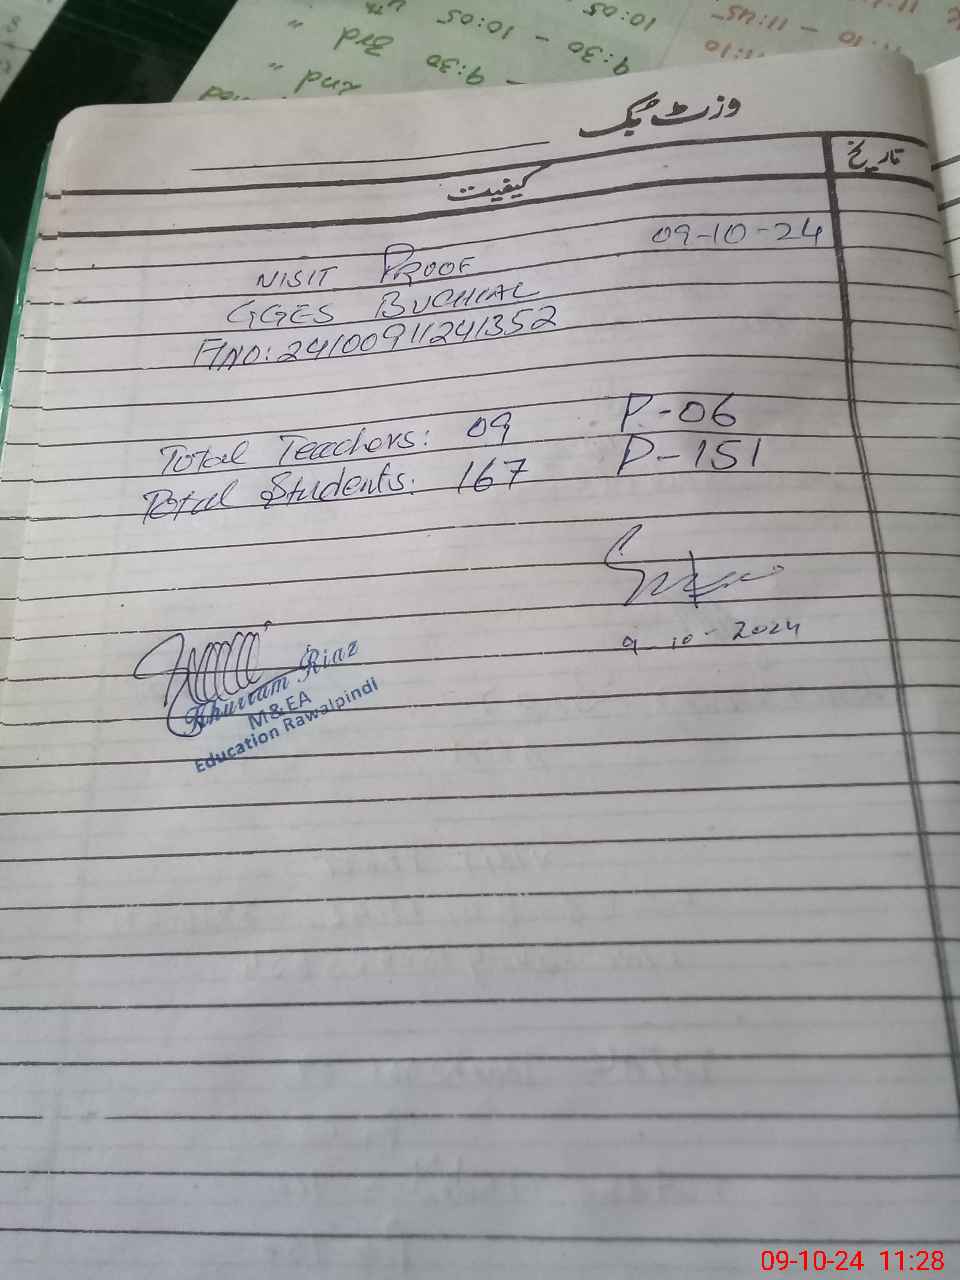 وزٹ بُک
کیفیت
تاریخ
09-10-24
VISIT PROOF
GGES BUCHIAL
A/NO: 24100911241352
Total Teachers: 09 P-06
Total Students: 167 P-151
9-10-2024
Khurram Riaz
M&EA
Education Rawalpindi
09-10-24 11:28
11:10 - 11:45
9:30 - 10:05
3rd "
9:30
2nd "